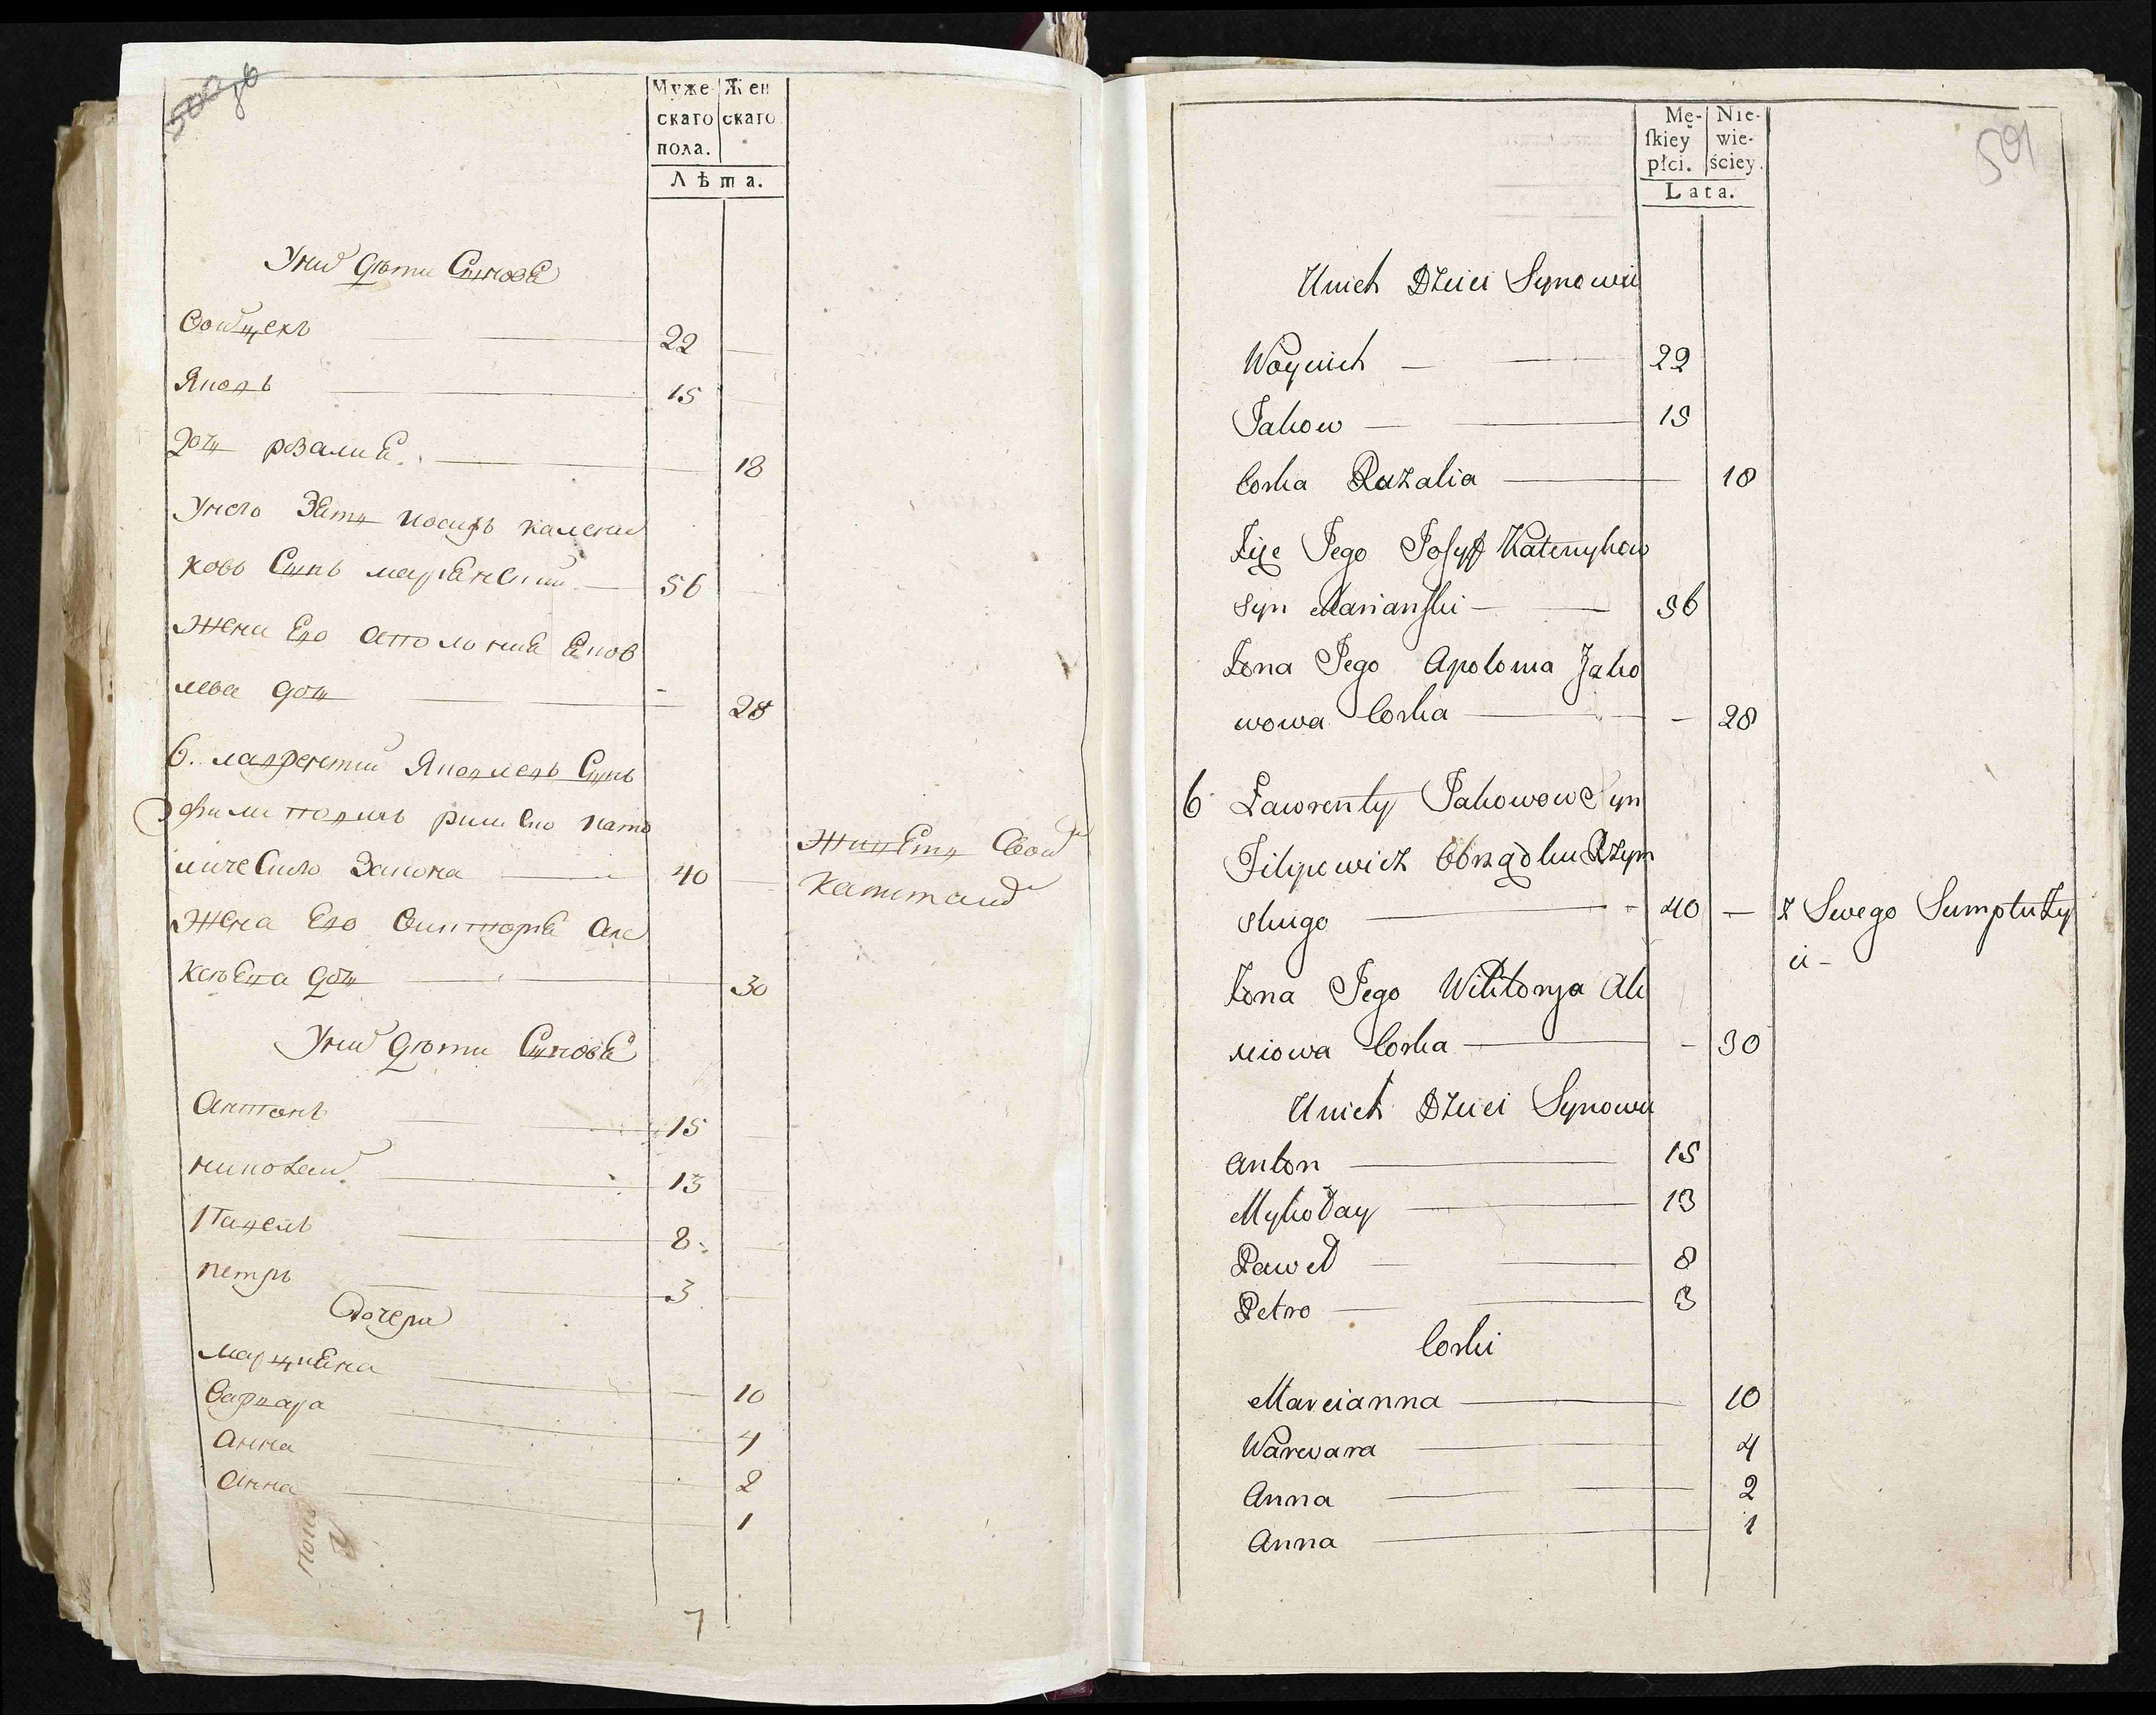 500об
Муже
скаго
пола.
Жен
скаго
Лѣта.
Униѣ Дѣти Синовя
Войцехъ 22
Яковъ 15
Дочъ розалия 18
Унего Зять иосифъ калени
ковъ Синъ марянский 56
Жена Его аполония Яков
лева дочь 28
6. лаврентий Яковлевъ Синъ
филиповичъ римско като
лическаго Закона 40
живетъ Свой
капиталй
Жена Его Виктория Але
ксѣева дочь 30
Униѣ Дѣти Синовя
Антонъ 15
николай 13
Павелъ 8
петръ 3
Дочери
марциана 10
Варвара 4
Анна 2
Анна 1
7
Mę-
ſkiey
płci.
Nie-
wie-
ściey.
Lata.
501
Unich Dzieci Synowie
Woyciech 22
Jakow 15
Corka Ruzalia 18
Zięc Jego Josyff Kalenykow
Syn Marianſki 56
Zona Jego Apolonia Jako
wowa Corka 28
6 Lawrenty Jakowow Syn
Filipowicz Obrządku Rzym
skiego 40 z Swego Sumptu Zy
ie
Zona Jego Wiktorya Ale
xiowa Corka 30
Unich Dzieci Synowie
Anton 15
Mykołay 13
Paweł 8
Petro 3
Corki
Marcianna 10
Warwara 4
Anna 2
Anna 1